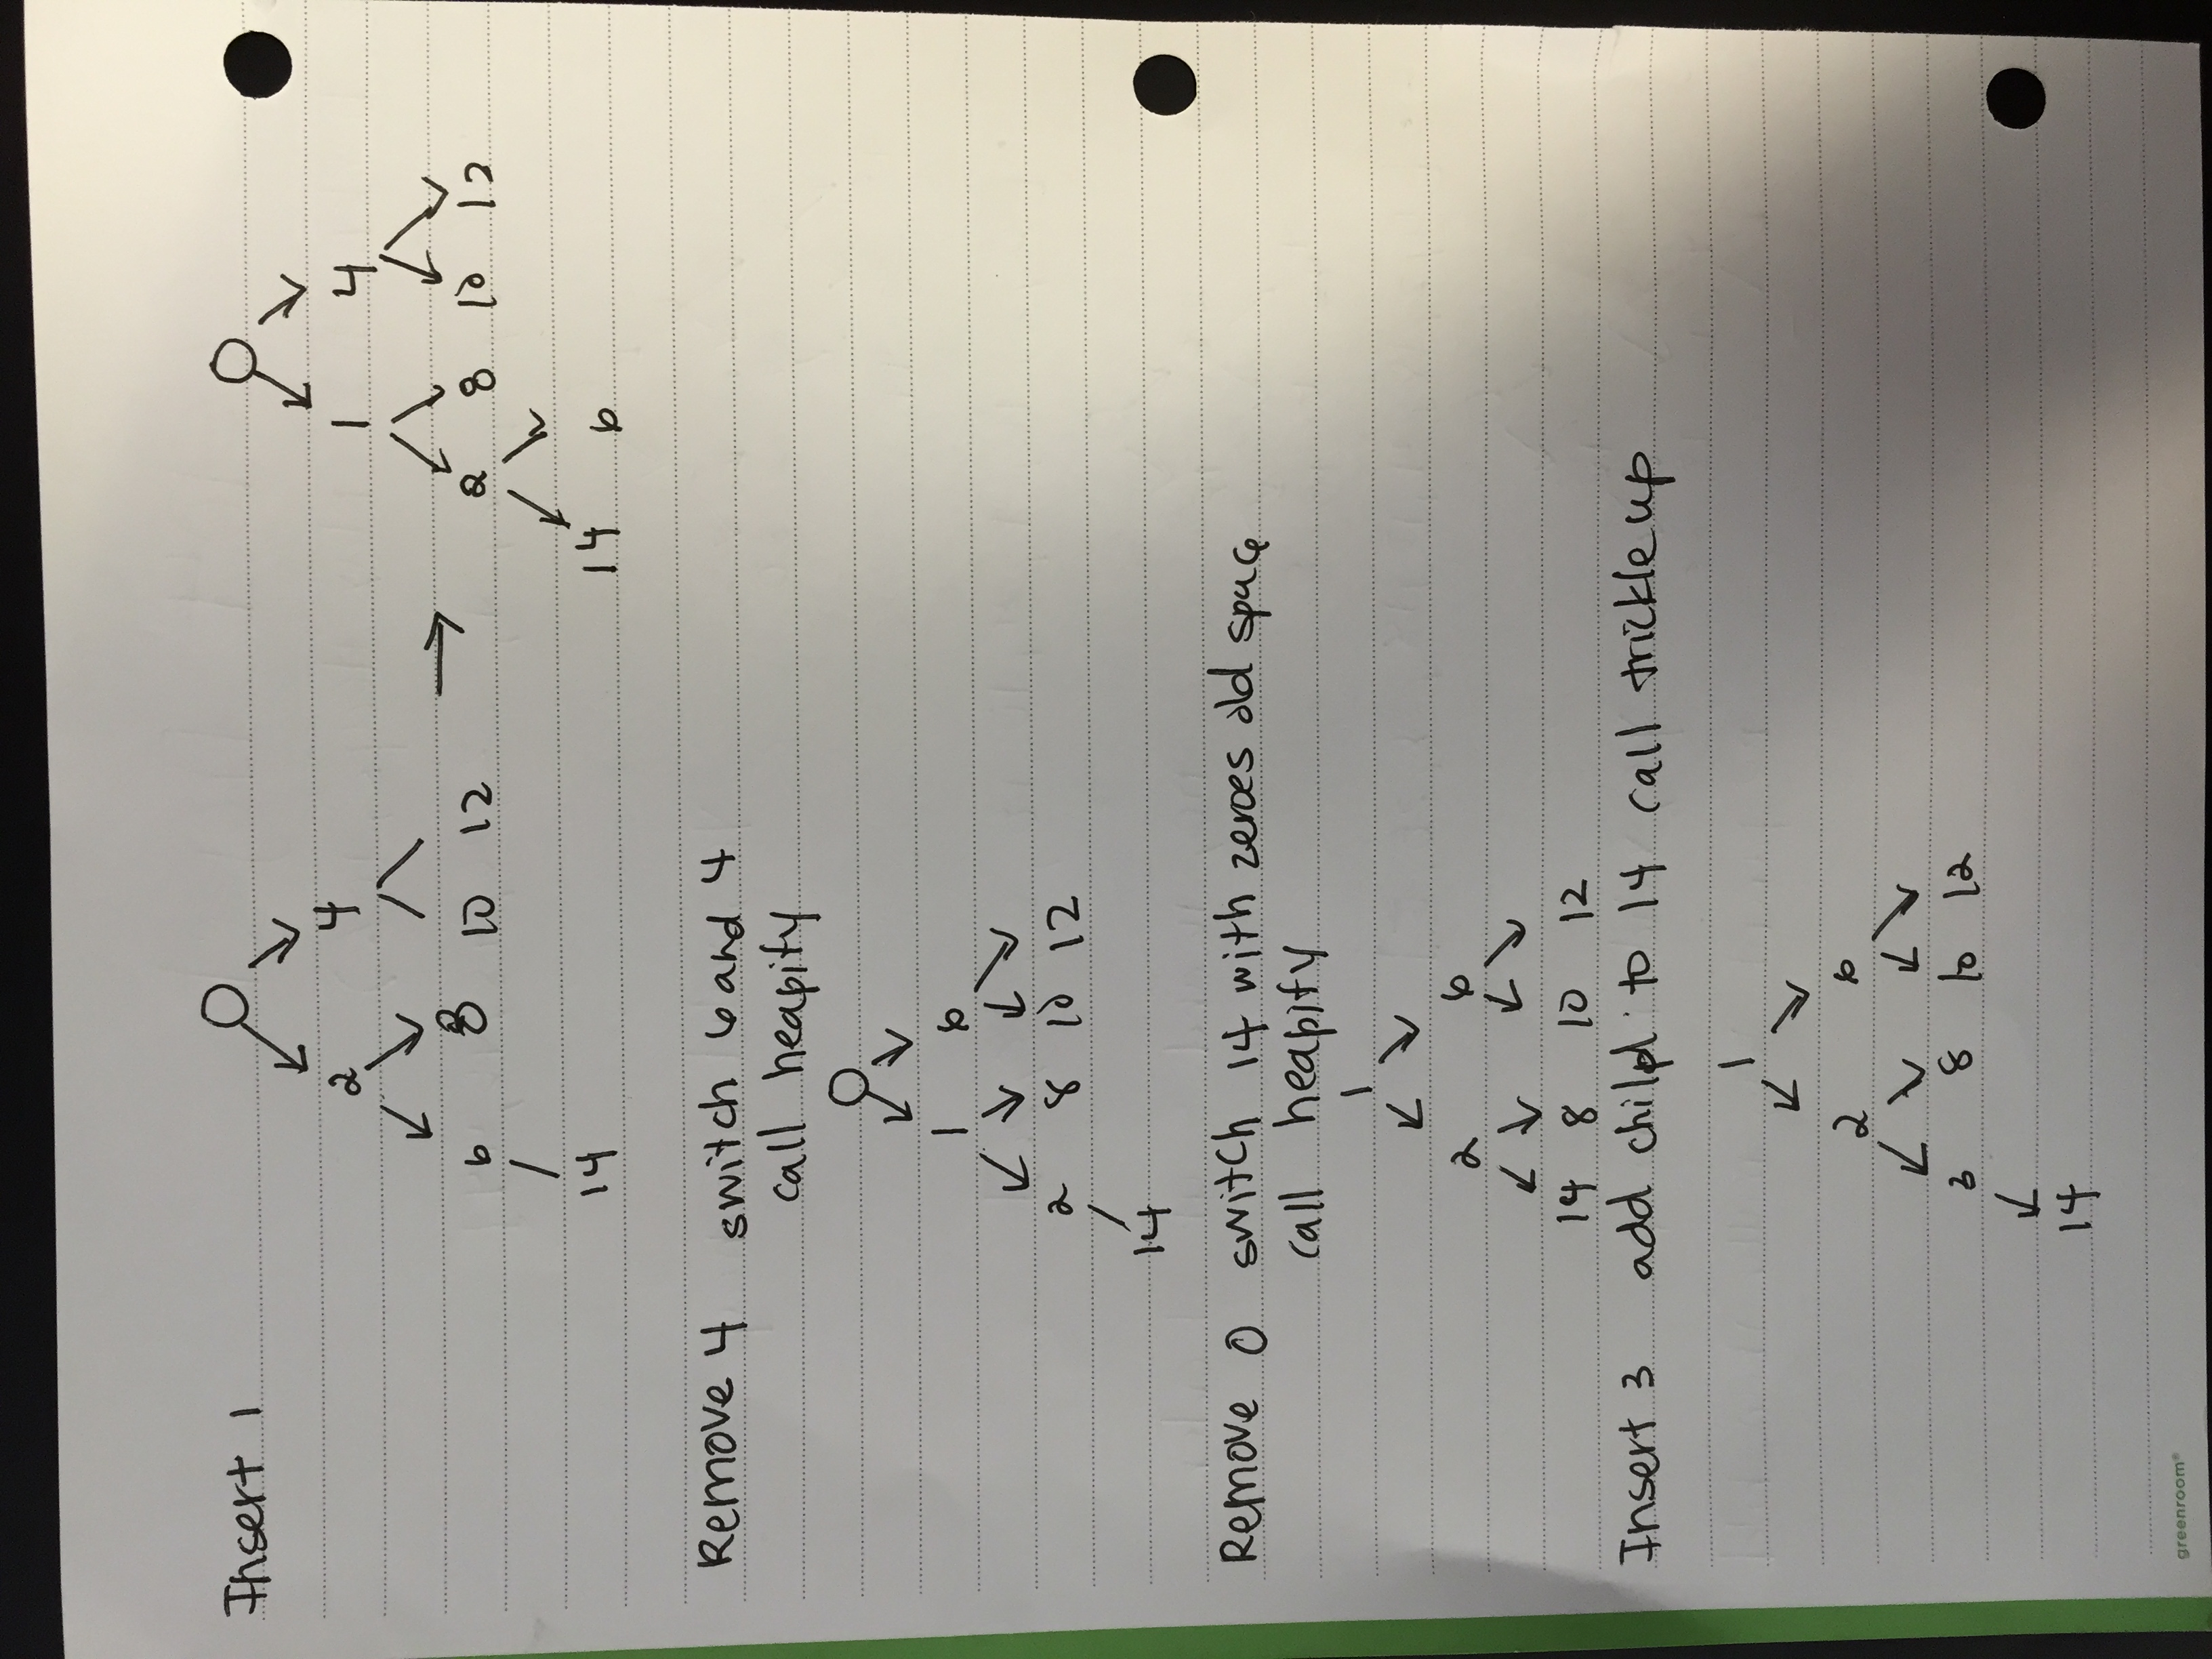 Insert 1
0 0
2 4 1 4
6 8 10 12 → 2 8 10 12
14 14 6
Remove 4 switch 6 and 4
call heapify
0
1 6
2 8 10 12
14
Remove 0 switch 14 with zeroes old space
call heapify
1
2 6
14 8 10 12
Insert 3 add child to 14 call trickle up
1
2 6
3 8 10 12
14
greenroom®